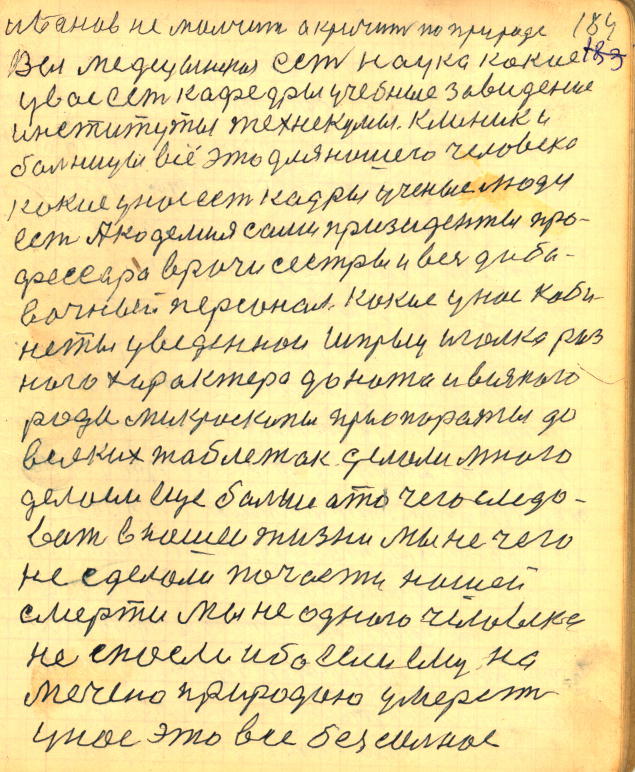 иванов не молчит а кричит по природе 184
Вся медецынская ест наука какие 183
у вас ест кафедры учебные заведение
институты технекумы. клиники
болницы всё это для нашего человека
какие у нас ест кадры ученые люди
ест Академия сами призиденты про-
фессара врачи сестры и вся диба-
вочный персонал. какие у нас каби
неты уведенной шприц иголка раз
ного характера до ножа и всякого
рода микроскопы приопораты до
всяких таблеток. сделали много
делоем еще болши а то чего следо-
ват в нашей жизни мы не чего
не сделали по части нашей
смерти мы не одного человека
не спасли ибо если ему на
мечено природаю умерет
у нас это все безсилное